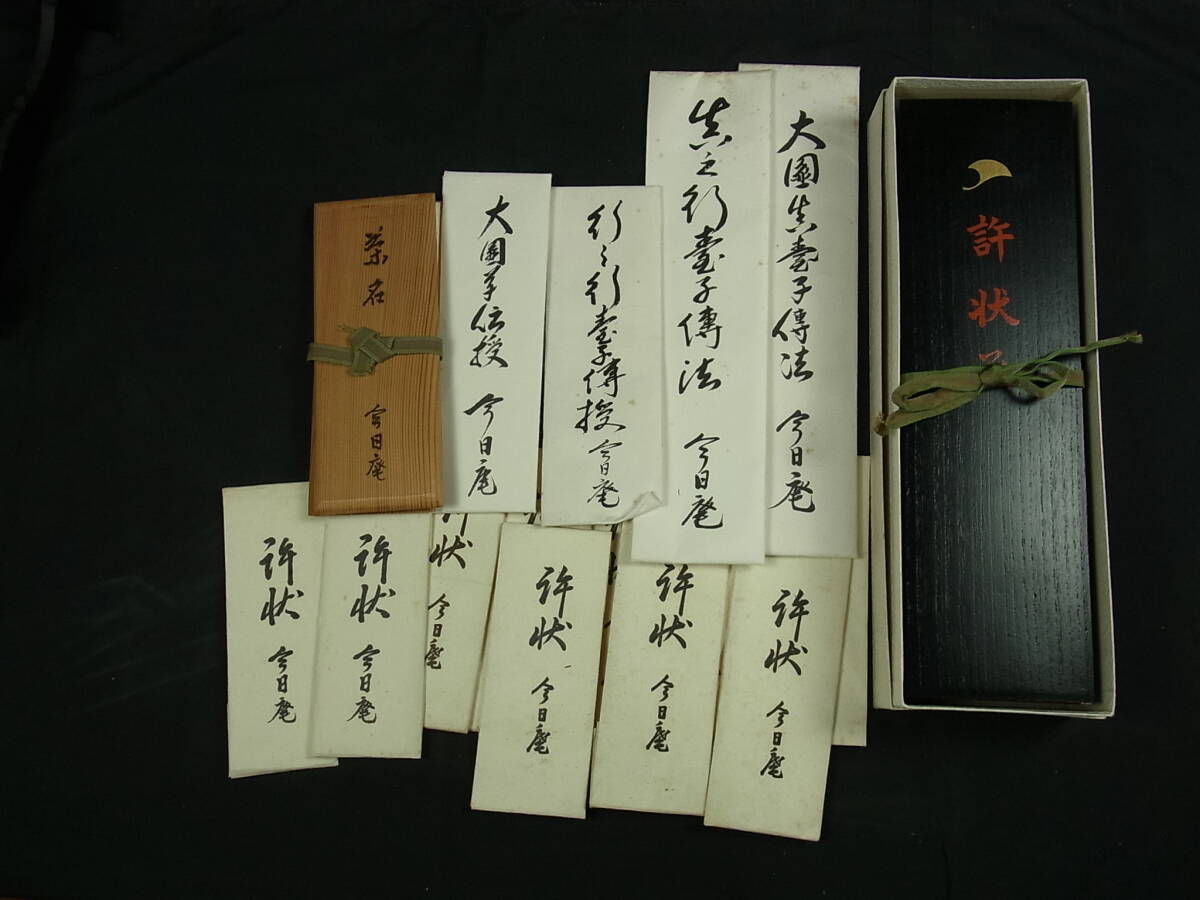 大圓真臺子傳法 今日庵
真之行臺子傳法 今日庵
行之行臺子傳授 今日庵
大圓草伝授 今日庵
茶名 今日庵
許状
許状 今日庵
許状 今日庵
許状 今日庵
状 今日庵
許状 今日庵
許状 今日庵